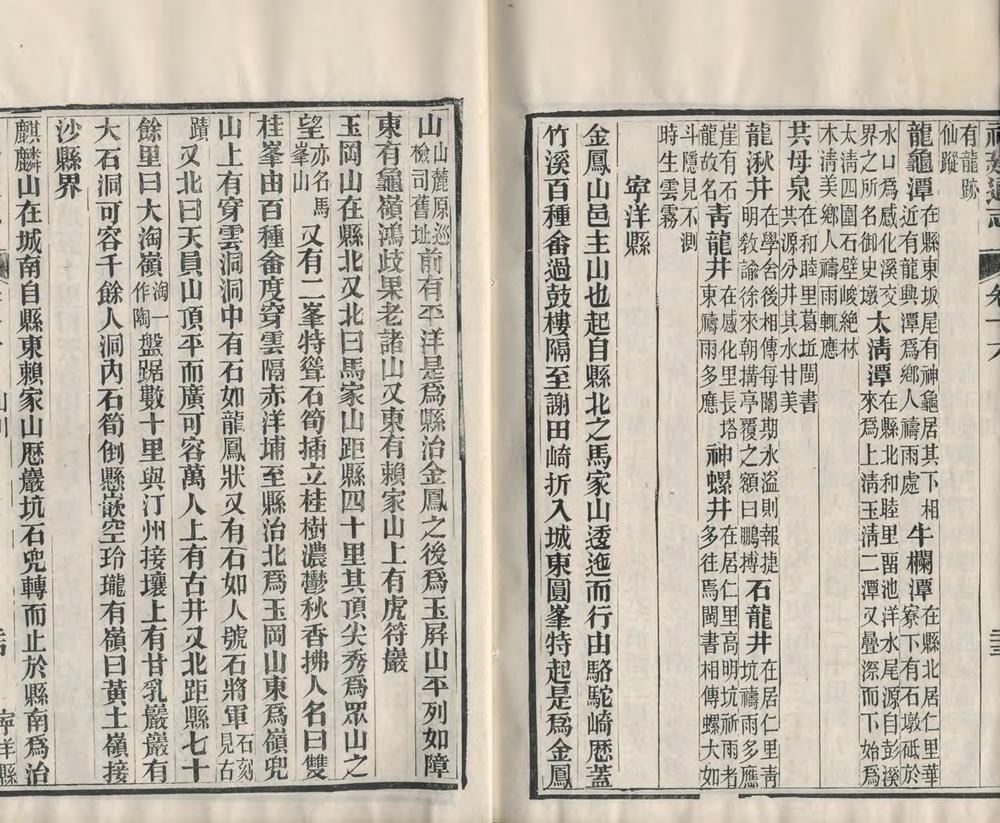 有龍跡仙蹤
龍龜潭在縣東坂尾有神龜居其下相近有龍興潭爲鄉人禱雨處牛欄潭在縣北居仁里華寮下有石墩砥於
水口爲感化溪交界之所名御史墩太淸潭在縣北和睦里畱池洋水尾源自彭溪來爲上淸玉淸二潭又疊漈而下始爲
太淸四圍石壁峻絕林木淸美鄉人禱雨輒應
共母泉在和睦里葛坵閩書共源分井其水甘美
龍湫井在學舍後相傳每闈期水溢則報捷明敎諭徐來朝搆亭覆之額曰鵬搏石龍井在居仁里靑坑禱雨多應
崖有石龍故名靑龍井在感化里長塔東禱雨多應神螺井在居仁里高明坑祈雨者多往焉閩書相傳螺大如
斗隱見不測時生雲霧
寜洋縣
金鳳山邑主山也起自縣北之馬家山透迤而行由駱駝崎歷蓋
竹溪百種畬過鼓樓隔至謝田崎折入城東圓峯特起是爲金鳳
山山麓原巡檢司舊址前有平洋是爲縣治金鳳之後爲玉屛山平列如障
東有龜嶺鴻歧果老諸山又東有賴家山上有虎符巖
玉岡山在縣北又北曰馬家山距縣四十里其頂尖秀爲眾山之
望亦名馬峯山又有二峯特聳石筍揷立桂樹濃鬱秋香拂人名曰雙
桂峯由百種畬度穿雲隔赤洋埔至縣治北爲玉岡山東爲嶺兜
山上有穿雲洞洞中有石如龍鳳狀又有石如人號石將軍石刻見古
蹟又北曰天員山頂平而廣可容萬人上有古井又北距縣七十
餘里曰大淘嶺淘一作陶盤踞數十里與汀州接壤上有甘乳巖巖有
大石洞可容千餘人洞內石筍倒懸嵌空玲瓏有嶺曰黃土嶺接
沙縣界
麒麟山在城南自縣東賴家山歷巖坑石兜轉而止於縣南爲治